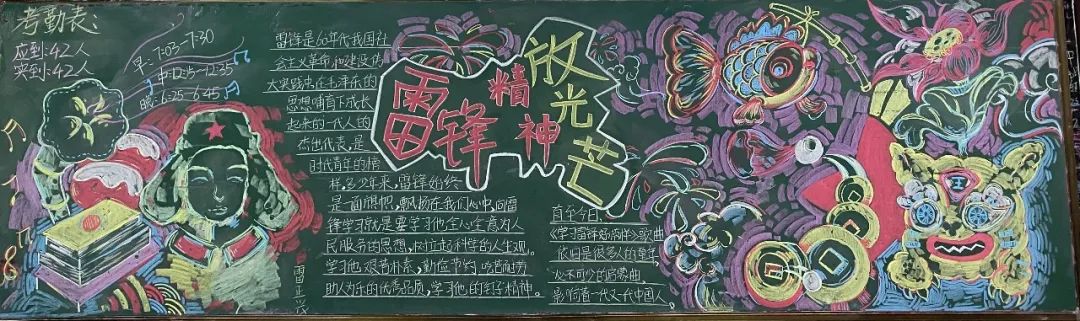 考勤表:
应到:42人
实到:42人
早:7:03-7:30
中:12:15-12:35
晚:6:25-6:45
雷锋是60年代我国社
会主义革命和建设伟
大实践史在毛泽东的
思想哺育下成长
起来的一代人的
杰出代表,是
时代青年的榜
样,多少年来,雷锋始终
是一面旗帜,飘扬在我们心中,向雷
锋学习就是要学习他全心全意为人
民服务的思想,树立起科学的人生观。
学习他艰苦朴素,勤俭节约,吃苦耐劳
助人为乐的优秀品质,学习他的钉子精神。
雷锋精神
放光芒
直至今日,
《学习雷锋好榜样》歌曲
依旧是很多人的童年
必不可少的启蒙曲,
影响着一代又一代中国人。
王